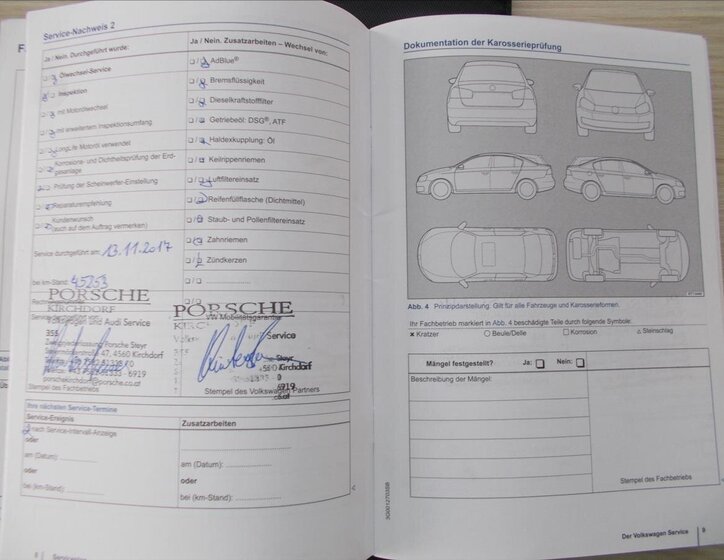 Service-Nachweis 2
Ja / Nein. Durchgeführt wurde:
Ölwechsel-Service
Inspektion
mit Motorölwechsel
mit erweitertem Inspektionsumfang
LongLife Motoröl verwendet
Korrosions- und Dichtheitsprüfung der Erd-
gasanlage
Prüfung der Scheinwerfer-Einstellung
Reparaturempfehlung
Kundenwunsch
(auch auf dem Auftrag vermerken)
Service durchgeführt am: 13.11.2017
bei km-Stand: 45253
Ja / Nein. Zusatzarbeiten – Wechsel von:
AdBlue®
Bremsflüssigkeit
Dieselkraftstofffilter
Getriebeöl: DSG®, ATF
Haldexkupplung: Öl
Keilrippenriemen
Luftfiltereinsatz
Reifenfüllflasche (Dichtmittel)
Staub- und Pollenfiltereinsatz
Zahnriemen
Zündkerzen
PORSCHE
KIRCHDORF
und Audi Service
Porsche Steyr
47, 4560 Kirchdorf
6919
porschekirchdorf@porsche.co.at
Stempel des Fachbetriebs
PORSCHE
VW Mobilitätsgarantie
Service
Steyr
Kirchdorf
6919
Stempel des Volkswagen Partners
Ihre nächsten Service-Termine
Service-Ereignis
nach Service-Intervall-Anzeige
oder
am (Datum):
oder
bei (km-Stand):
Zusatzarbeiten
am (Datum):
oder
bei (km-Stand):
8
Dokumentation der Karosserieprüfung
Abb. 4 Prinzipdarstellung: Gilt für alle Fahrzeuge und Karosserieformen.
Ihr Fachbetrieb markiert in Abb. 4 beschädigte Teile durch folgende Symbole:
× Kratzer ○ Beule/Delle □ Korrosion △ Steinschlag
Mängel festgestellt? Ja: □ Nein: □
Beschreibung der Mängel:
Stempel des Fachbetriebs
Der Volkswagen Service 9